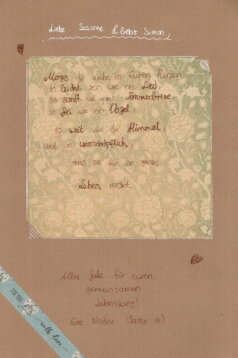 Liebe Susanne & lieber Simon,
Möge die Liebe in euren Herzen
so leicht sein wie ein Lied,
so sanft wie eine Sommerbrise,
so frei wie ein Vogel
so weit wie der Himmel
und so unerschöpflich,
dass sie für ein ganzes
Leben reicht.
Alles Gute für euren
gemeinsamen
Lebensweg!
Eure
with love